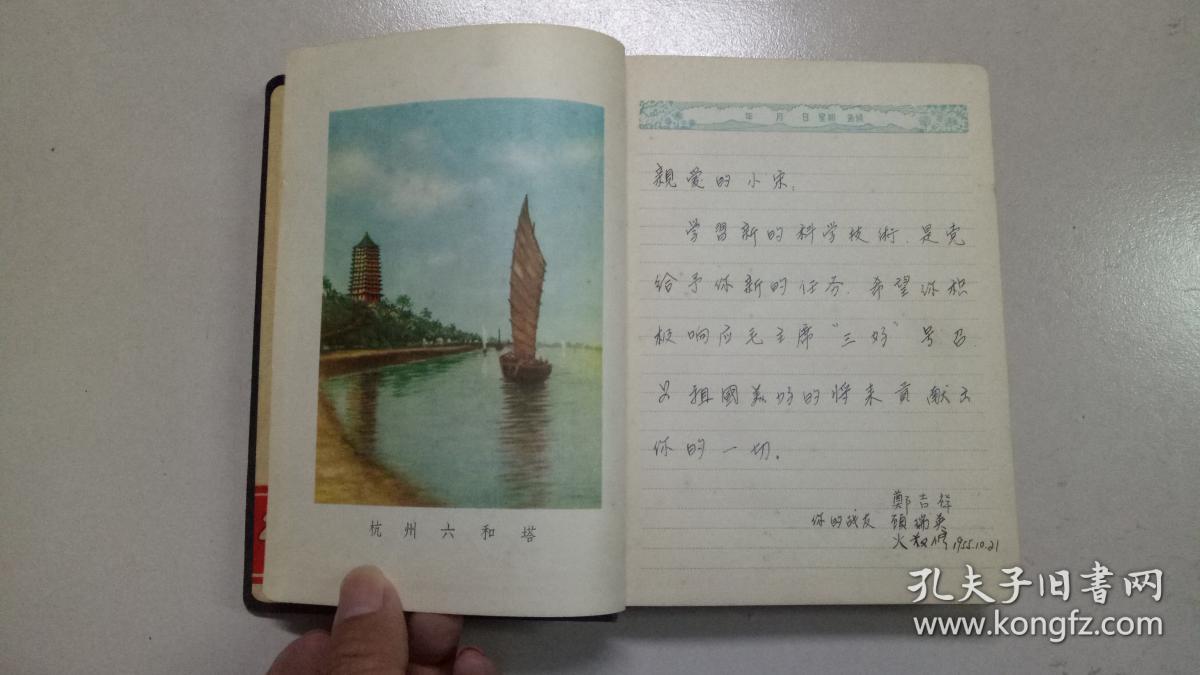 杭州六和塔
年 月 日 星期 氣候
親愛的小宋,
学習新的科学技術.是党
给予你新的任务.希望你积
极响应毛主席“三好”号召.
为祖國美好的将来貢献出
你的一切.
鄭吉祥
你的战友 顧瑞英
1955.10.21
孔夫子旧书网
www.kongfz.com